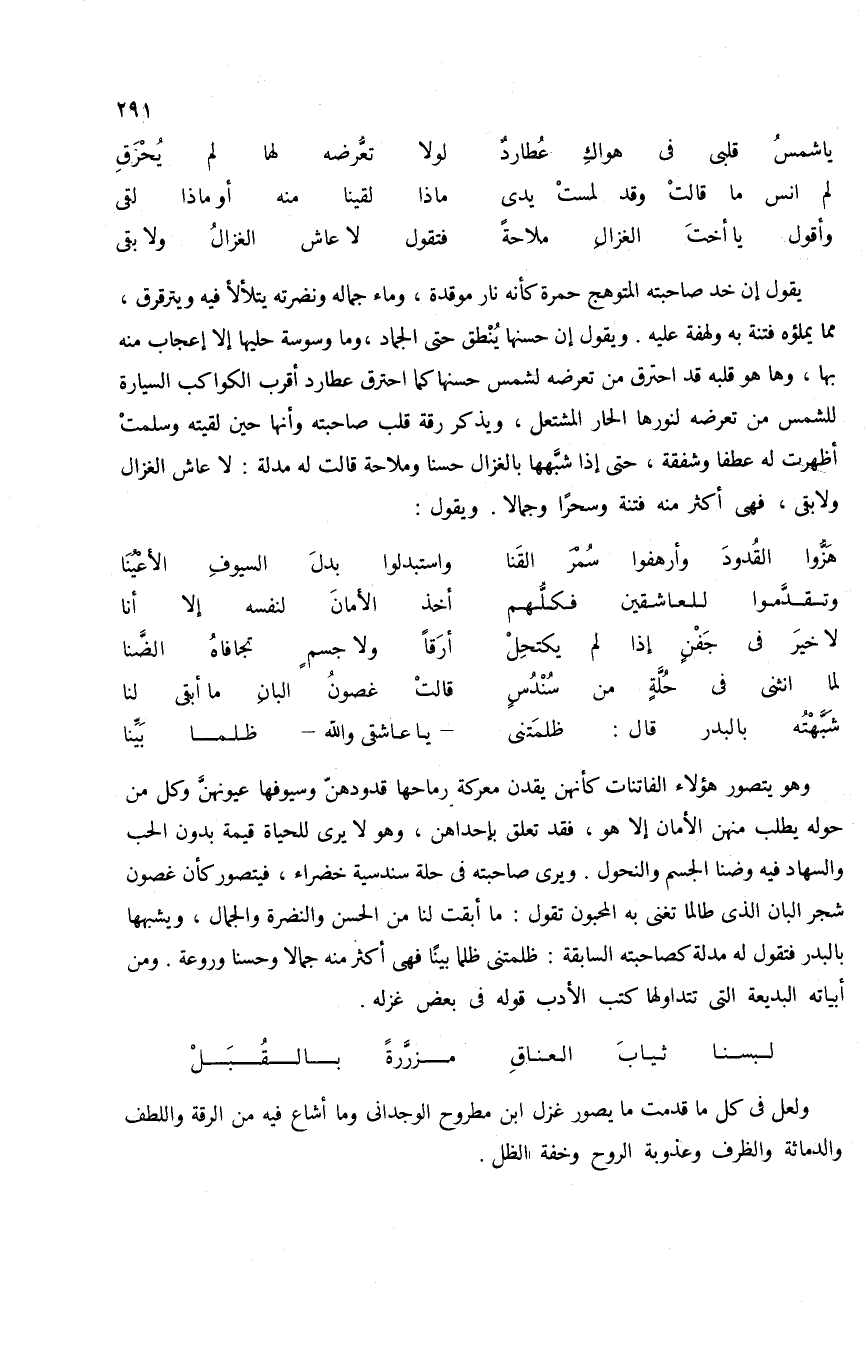 ٢٩١
ياشمسُ قلبى فى هواكِ عُطاردٌ لولا تعرُّضه لها لم يُحْرَقِ
لم انس ما قالتْ وقد لمستْ يدى ماذا لقينا منه أو ماذا لقى
وأقول يا أختَ الغزالِ ملاحةً فتقول لا عاش الغزالُ ولا بقى
يقول إن خد صاحبته المتوهج حمرة كأنه نار موقدة ، وماء جماله ونضرته يتلألأ فيه ويترقرق ،
مما يملؤه فتنة به ولهفة عليه . ويقول إن حسنها يُنْطق حتى الجماد ،وما وسوسة حليها إلا إعجاب منه
بها ، وها هو قلبه قد احترق من تعرضه لشمس حسنها كما احترق عطارد أقرب الكواكب السيارة
للشمس من تعرضه لنورها الحار المشتعل ، ويذكر رقة قلب صاحبته وأنها حين لقيته وسلمتْ
أظهرت له عطفا وشفقة ، حتى إذا شبَّهها بالغزال حسنا وملاحة قالت له مدلة : لا عاش الغزال
ولابقى ، فهى أكثر منه فتنة وسحرًا وجمالا . ويقول :
هَزُّوا القُدودَ وأرهفوا سُمْرَ القَنا واستبدلوا بدلَ السيوفِ الأعْيُنَا
وتـقـدَّمـوا للـعاشـقين فـكلُّـهـم أخذ الأمانَ لنفسه إلا أنا
لا خيرَ فى جَفْنٍ إذا لم يكتحِلْ أرَقاً ولا جسمٍ تجافاهُ الضَّنا
لما انثنى فى حُلَّةٍ من سُنْدُسٍ قالتْ غصونُ البانِ ما أبقى لنا
شبَّهْتُه بالبدر قال : ظلمَتنى – يا عاشقى والله – ظلـمـا بَيِّنا
وهو يتصور هؤلاء الفاتنات كأنهن يقدن معركة رماحها قدودهنّ وسيوفها عيونهنَّ وكل من
حوله يطلب منهن الأمان إلا هو ، فقد تعلق بإحداهن ، وهو لا يرى للحياة قيمة بدون الحب
والسهاد فيه وضنا الجسم والنحول . ويرى صاحبته فى حلة سندسية خضراء ، فيتصور كأن غصون
شجر البان الذى طالما تغنى به المحبون تقول : ما أبقت لنا من الحسن والنضرة والجمال ، ويشبهها
بالبدر فتقول له مدلة كصاحبته السابقة : ظلمتنى ظلما بينًا فهى أكثر منه جمالا وحسنا وروعة . ومن
أبياته البديعة التى تتداولها كتب الأدب قوله فى بعض غزله .
لـبسـنا ثـيابَ الـعناقِ مـزرَّرةً بـالـقُـبَـلْ
ولعل فى كل ما قدمت ما يصور غزل ابن مطروح الوجدانى وما أشاع فيه من الرقة واللطف
والدماثة والظرف وعذوبة الروح وخفة الظل .